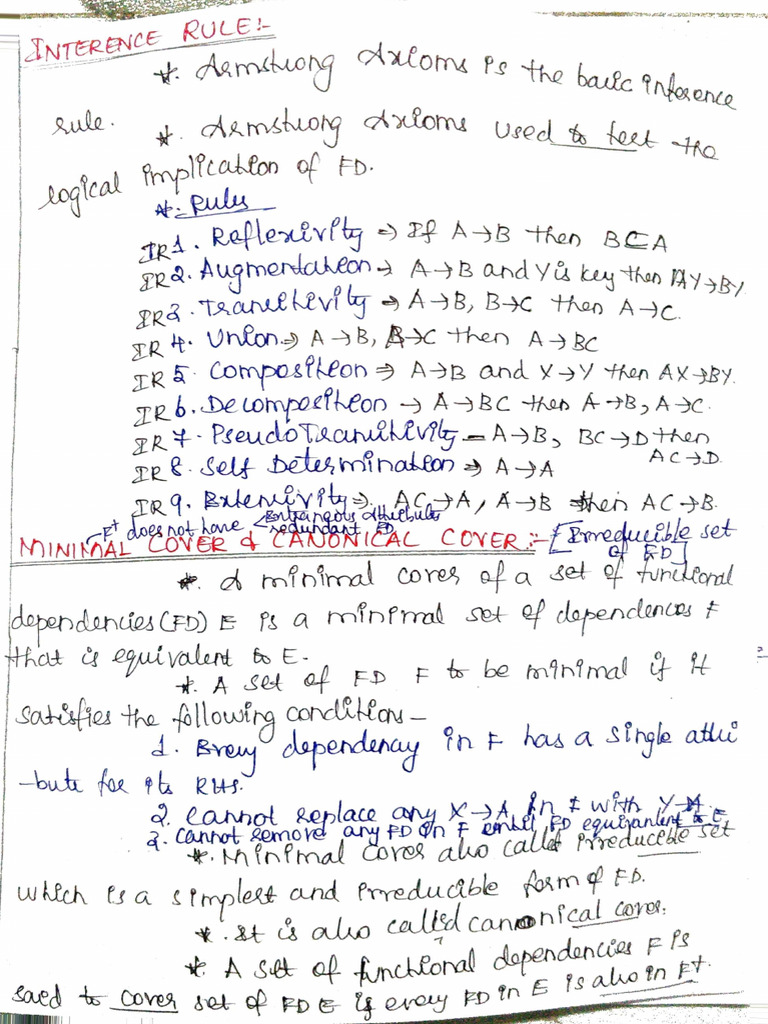 INTERENCE RULE:-
*. Armstrong Axioms is the basic inference
rule.
*. Armstrong Axioms used to test the
logical implication of FD.
*. Rules
IR1. Reflexivity => If A→B then B⊂A
IR2. Augmentation → A→B and Y is key then AY→BY
IR3. Transitivity → A→B, B→C then A→C.
IR4. Union => A→B, A→C then A→BC
IR5. Composition => A→B and X→Y then AX→BY.
IR6. Decomposition → A→BC then A→B, A→C.
IR7. Pseudo Transitivity - A→B, BC→D then
AC→D.
IR8. Self Determination => A→A
IR9. Extensivity => AC→A, A→B then AC→B.
F+ does not have < Extraneous attribute
redundant FD
MINIMAL COVER & CANONICAL COVER:- [Irreducible set
of FD]
*. A minimal cover of a set of functional
dependencies (FD) E is a minimal set of dependences F
that is equivalent to E.
*. A set of FD F to be minimal if it
satisfies the following conditions -
1. Every dependency in F has a single attri
-bute for its RHS.
2. Cannot replace any X→A in F with Y→A.
3. Cannot remove any FD in F FD equivalent to E
*. Minimal cover also called irreducible set
which is a simplest and irreducible form of FD.
*. It is also called canonical cover.
*. A set of functional dependencies F is
said to cover set of FD E if every FD in E is also in F+.